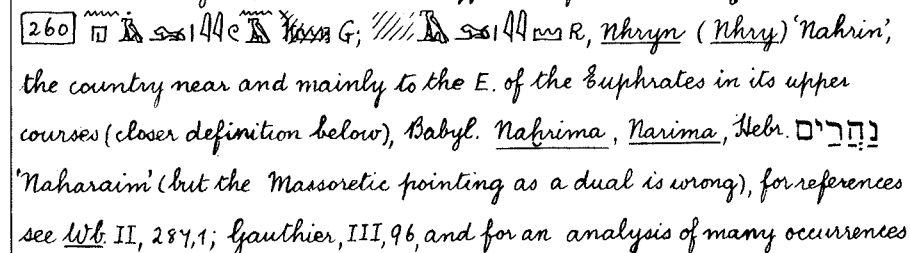 260 G; R, Nhryn (Nhry) 'Nahrin',
the country near and mainly to the E. of the Euphrates in its upper
courses (closer definition below), Babyl. Naḫrima, Narima, Hebr. נַהֲרַיִם
'Naharaim' (but the Massoretic pointing as a dual is wrong), for references
see Wb. II, 287,1; Gauthier, III, 96, and for an analysis of many occurrences